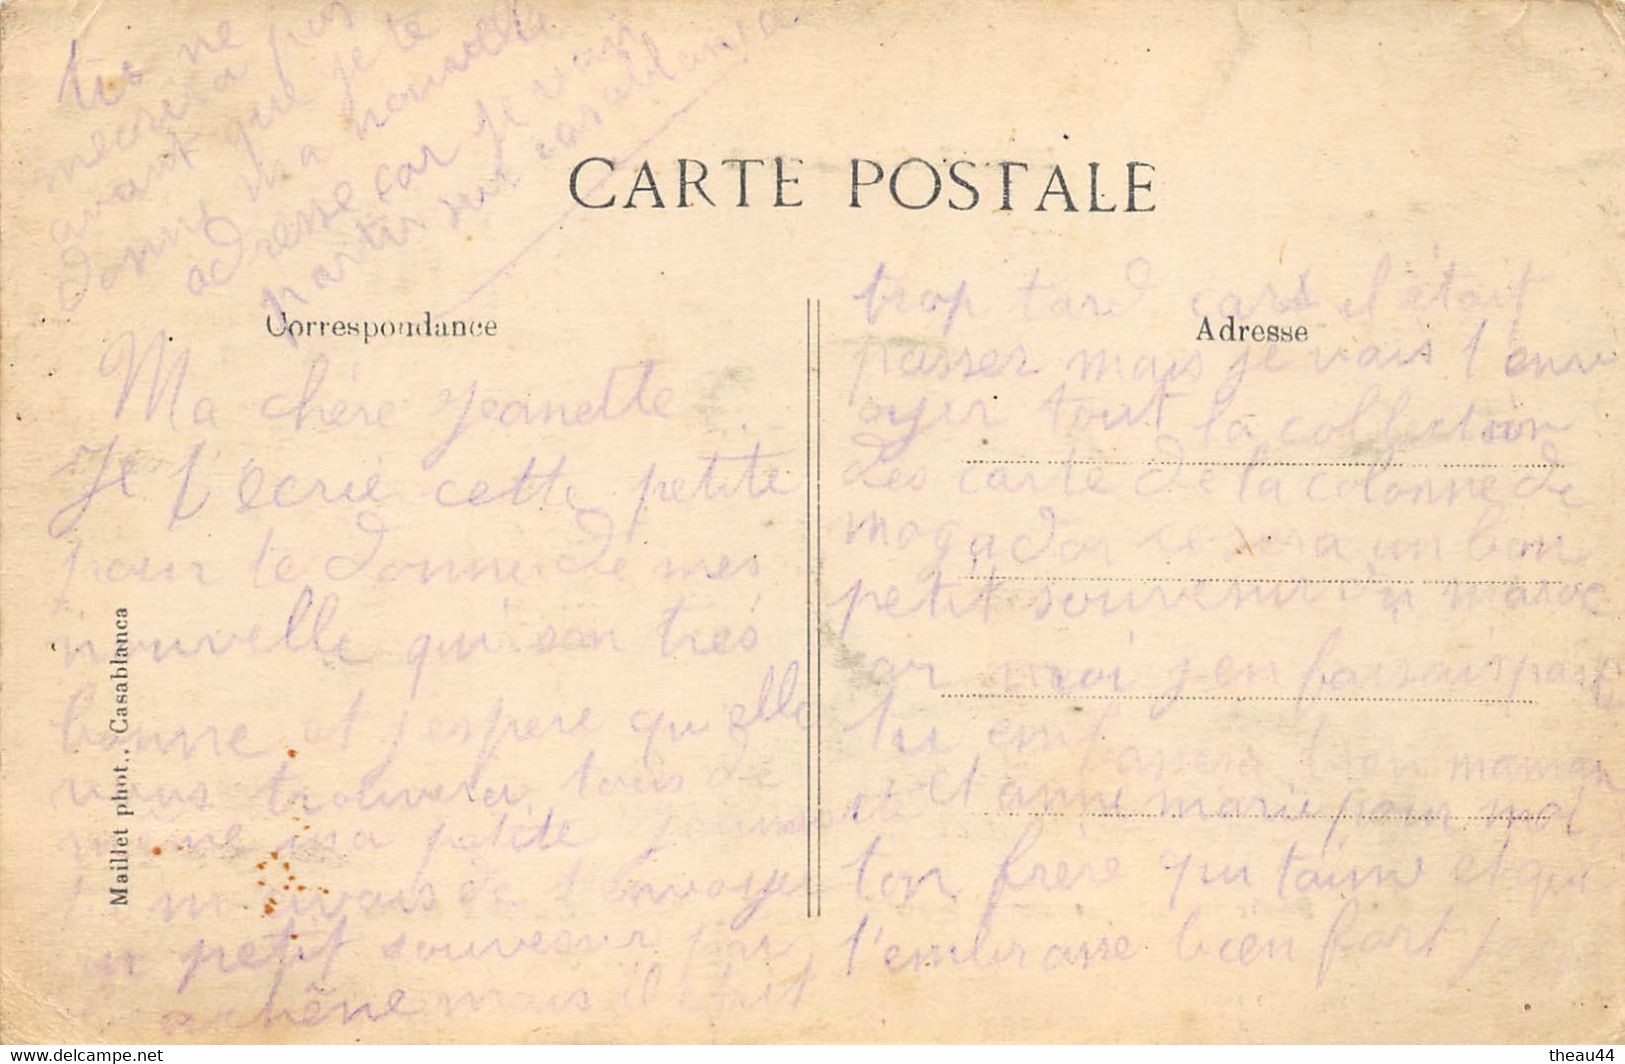 tu ne
pas
avant que je te
donne ma nouvelle
adresse car je vais
partir sur casablanca
CARTE POSTALE
Correspondance
Ma chère Jeanette
Je t'écrie cette petite
pour te donner de mes
nouvelle qui son très
bonne et j'espere qu'elle
vous trouvera tous de
même ma petite
de t'envoyer
un petit souvenir
mais il était
Maillet phot., Casablanca
Adresse
trop tard cart il était
passer mais je vais t'env
oyer tout la collection
des carte de la colonne de
mogador ce sera un bon
petit souvenir du maroc
car moi j'en faisais
tu embrassera bien maman
et anne marie pour moi
ton frère qui taime et qui
t'embrasse bien fort
theau44